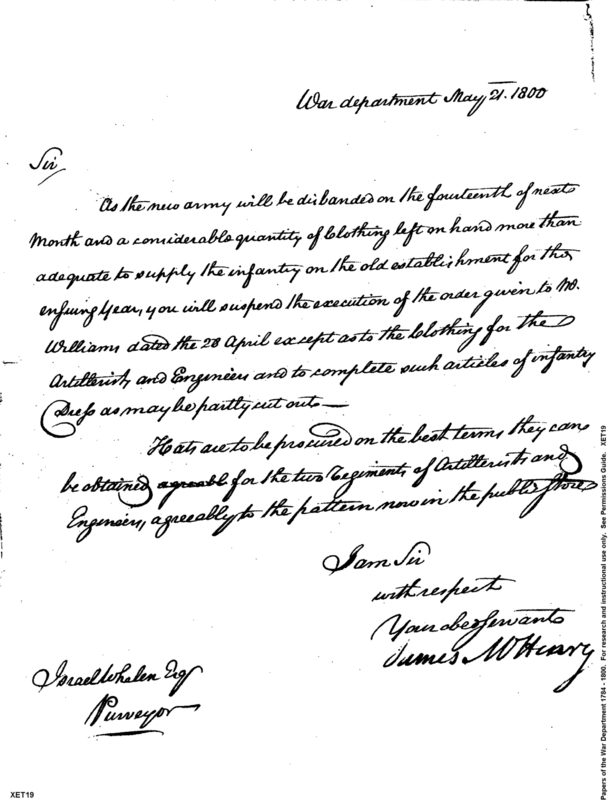 War department May 21. 1800
Sir
As the new army will be disbanded on the fourteenth of next
Month and a considerable quantity of Clothing left on hand more than
adequate to supply the infantry on the old establishment for the
ensuing Year, you will suspend the execution of the order given to Mr.
Williams dated the 28 April except as to the Clothing for the
Artillerists and Engineers and to complete such articles of infantry
Dress as may be partly cut out—
Hats are to be procured on the best terms they can
be obtained agreeabl for the two Regiments of Artillerists and
Engineers, agreeably to the pattern now in the public Store
I am Sir
with respect
Your obed Servant
James McHenry
Israel Whelen Esq
Purveyor
XET19
Papers of the War Department 1784 - 1800. For research and instructional use only. See Permissions Guide. XET19